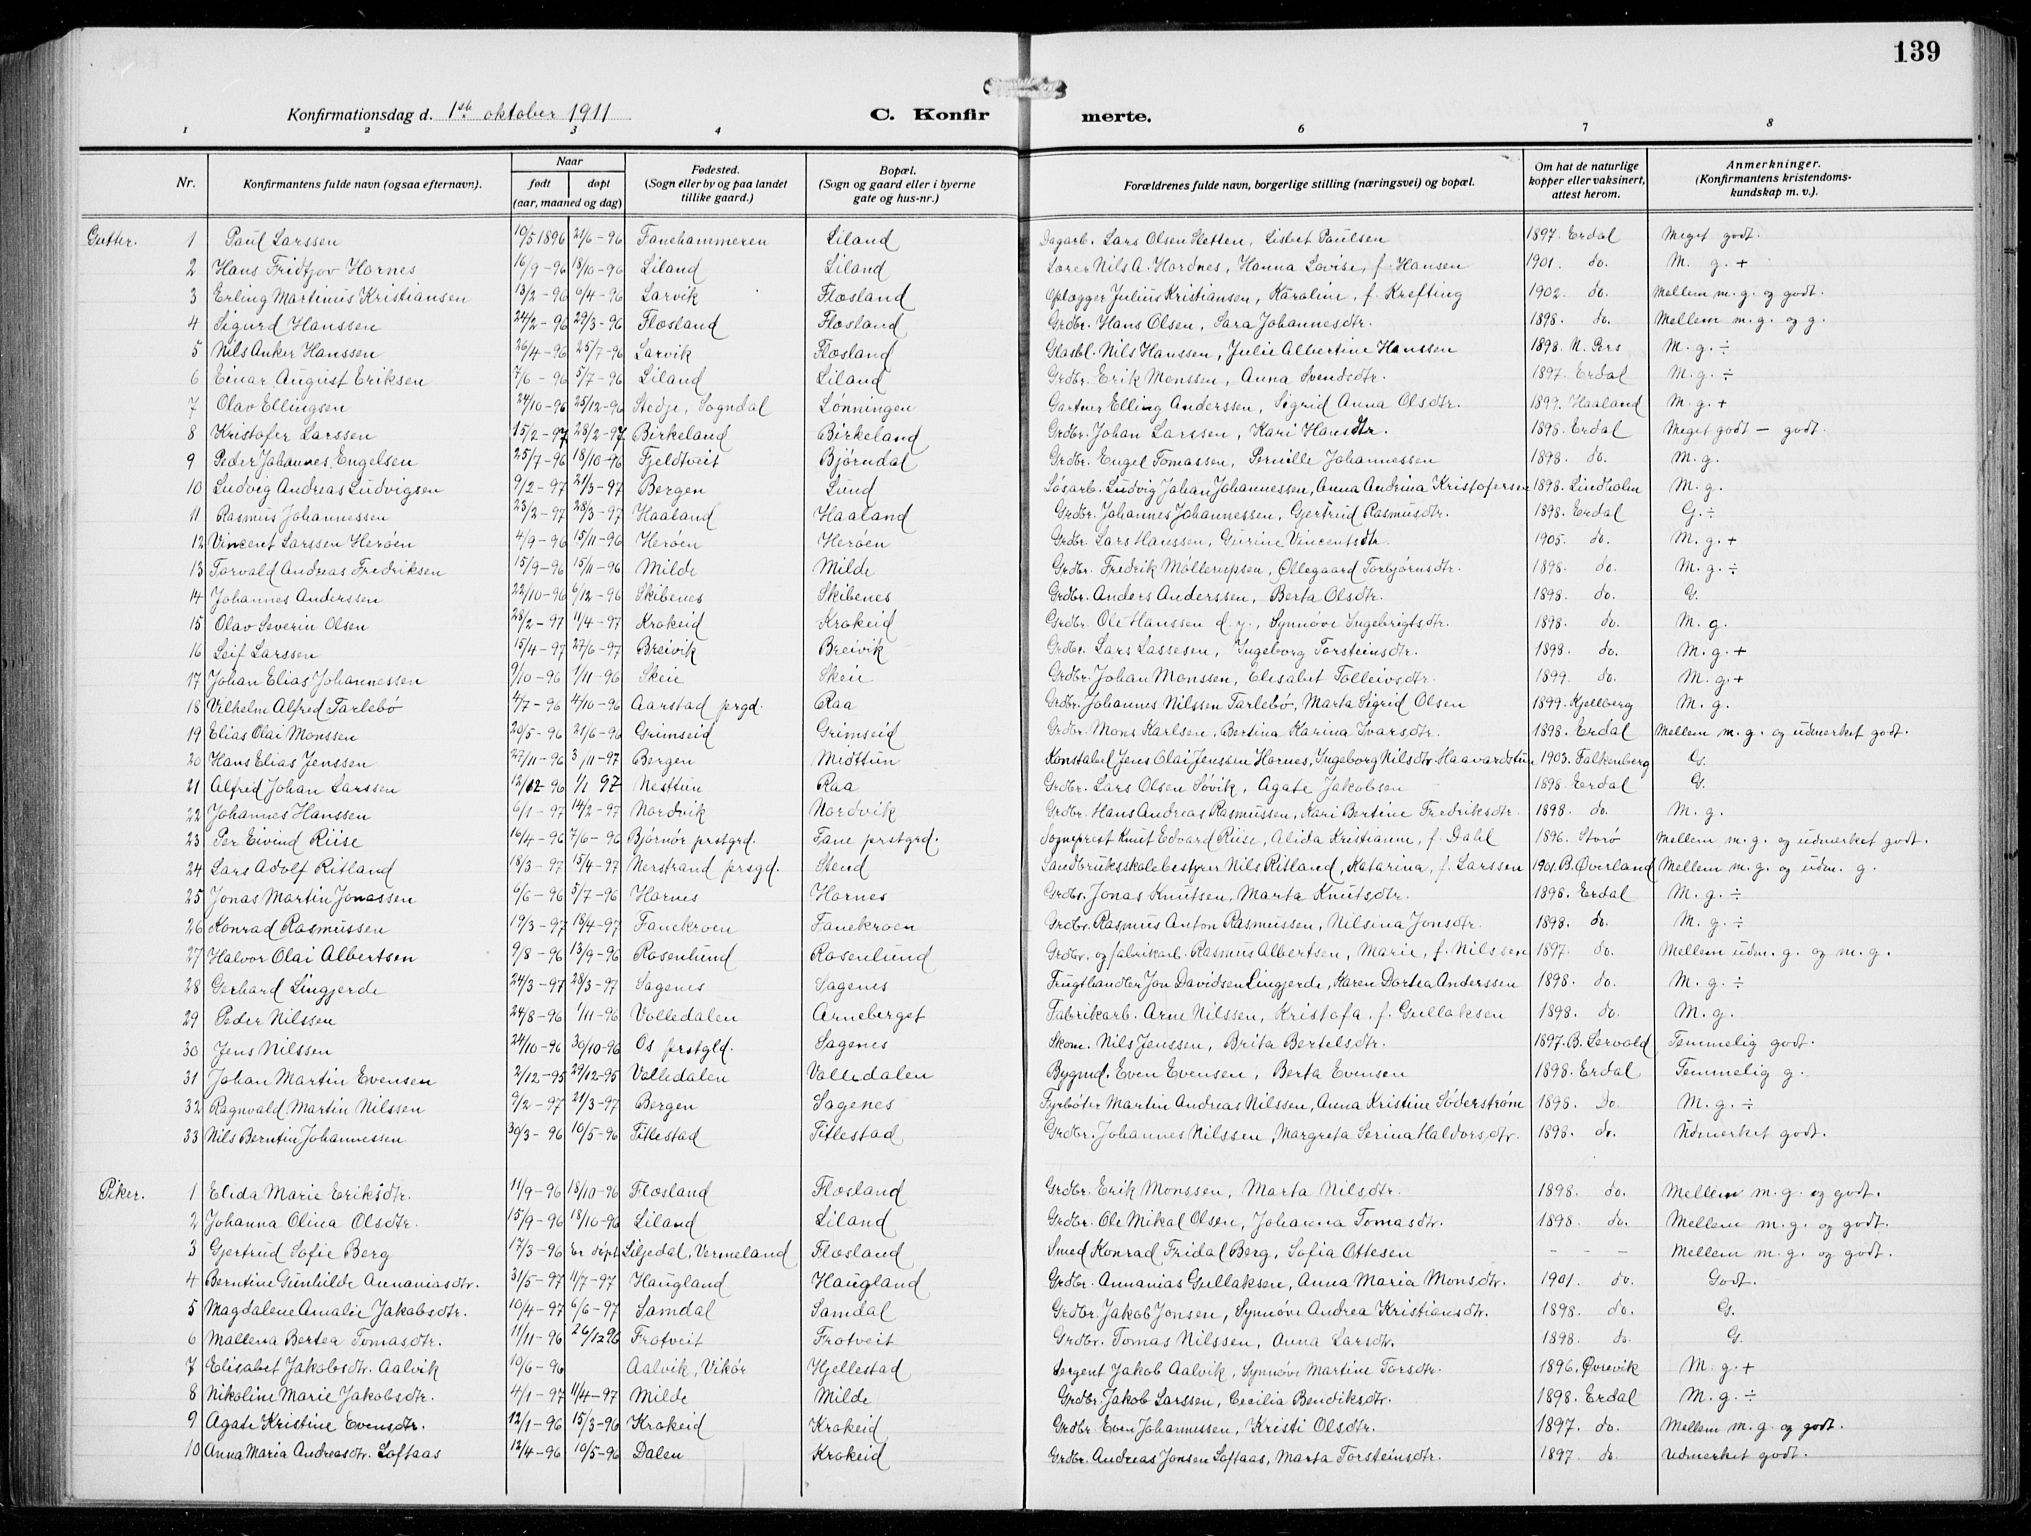 139
Konfirmationsdag d. 1ste oktober 1911
C. Konfirmerte.
1 2 3 4 5 6 7 8
Nr. Konfirmantens fulde navn (ogsaa efternavn). Naar født døpt (aar, maaned og dag) Fødested. (Sogn eller by og paa landet tillike gaard.) Bopæl. (Sogn og gaard eller i byerne gate og hus-nr.) Forældrenes fulde navn, borgerlige stilling (næringsvei) og bopæl. Om hat de naturlige kopper eller vaksinert, attest herom. Anmerkninger. (Konfirmantens kristendomskundskap m. v.).
Gutter. 1 Paul Larssen 19/5 1896 21/6-96 Fanehammeren Liland Dagarb. Lars Olsen Sletten, Lisbet Paulsen 1897. Erdal Meget godt.
2 Hans Fridtjov Hornes 16/9-96 18/10-96 Liland Liland Lærer Nils A. Hordnes, Hanna Lovise, f. Hansen 1901. do. M. g. +
3 Erling Martinus Kristiansen 13/2-96 6/4-96 Larvik Flæsland Oplægger Julius Kristiansen, Karoline, f. Krefting 1902. do. Mellem m. g. og godt.
4 Sigurd Hanssen 24/2-96 29/3-96 Flæsland Flæsland Grdbr. Hans Olsen, Sara Johannesdtr. 1898. do. Mellem m. g. og g.
5 Nils Anker Hanssen 26/4-96 25/7-96 Larvik Flæsland Glasbl. Nils Hanssen, Julie Albertine Hanssen 1898. N. Pers M. g. ÷
6 Einar August Eriksen 7/6-96 5/7-96 Liland Liland Grdbr. Erik Monssen, Anna Svendsdtr. 1897. Erdal M. g. ÷
7 Olav Ellingsen 24/10-96 25/12-96 Stedje, Sogndal Lønningen Gartner Elling Anderssen, Sigrid Anna Olsdtr. 1899. Haaland M. g. +
8 Kristofer Larssen 15/2-97 28/2-97 Birkeland Birkeland Grdbr. Johan Larssen, Kari Hansdtr. 1898. Erdal Meget godt - godt.
9 Peder Johannes Engelsen 25/7-96 18/10-96 Fjeldtveit Bjørndal Grdbr. Engel Tomassen, Pernille Johannessen 1898. do. M. g.
10 Ludvig Andreas Ludvigsen 9/2-97 21/3-97 Bergen Lund Løsarb. Ludvig Johan Johannessen, Anna Andrina Kristofersen 1898. Lindholm M. g.
11 Rasmus Johannessen 23/2-97 28/3-97 Haaland Haaland Grdbr. Johannes Johannessen, Gjertrud Rasmusdtr. 1898. Erdal G. ÷
12 Vincent Larssen Herøen 4/9-96 15/11-96 Herøen Herøen Grdbr. Lars Hanssen, Gurine Vincentsdtr. 1905. do. M. g. +
13 Torvald Andreas Fredriksen 15/9-96 15/11-96 Milde Milde Grdbr. Fredrik Møllerupsen, Ollegaard Torbjørnsdtr. 1898. do. M. g. ÷
14 Johannes Anderssen 22/10-96 6/12-96 Skibenes Skibenes Grdbr. Anders Anderssen, Berta Olsdtr. 1898. do. G.
15 Olav Severin Olsen 28/2-97 11/4-97 Krokeid Krokeid Grdbr. Ole Hanssen d. y., Synnøve Ingebrigtsdtr. 1898. do. M. g.
16 Leif Larssen 15/4-97 27/6-97 Breivik Breivik Grdbr. Lars Lassesen, Ingeborg Torsteinsdtr. 1898. do. M. g. +
17 Johan Elias Johannessen 9/10-96 1/11-96 Skeie Skeie Grdbr. Johan Monssen, Elisabet Tolleivsdtr. 1899. do. M. g. +
18 Vilhelm Alfred Tarlebø 4/7-96 4/10-96 Aarstad prgd. Raa Grdbr. Johannes Nilssen Tarlebø, Marta Sigrid Olsen 1899. Kjellberg M. g.
19 Elias Olai Monssen 20/5-96 21/6-96 Grimseid Grimseid Grdbr. Mons Karlsen, Bertina Karina Ivarsdtr. 1898. Erdal Mellem m. g. og udmerket godt.
20 Hans Elias Jenssen 27/11-96 3/11-97 Bergen Midttun Konstabel Jens Olai Jenssen Hornes, Ingeborg Nilsdtr. Haavardstun 1903. Falkenberg G.
21 Alfred Johan Larssen 12/12-96 1/1 97 Nesttun Raa Grdbr. Lars Olsen Søvik, Agate Jakobsen 1898. Erdal G.
22 Johannes Hanssen 6/1-97 14/2-97 Nordvik Nordvik Grdbr. Hans Andreas Rasmussen, Kari Bertine Fredriksdtr. 1898. do. M. g.
23 Per Eivind Riise 16/4-96 7/6-96 Bjørnør prstgrd. Fane prstgrd. Sogneprest Knut Edvard Riise, Alida Kristianne, f. Dahl 1896. Storø Mellem m. g. og udmerket godt.
24 Lars Adolf Ritland 18/3-97 15/4-97 Nerstrand prsgd. Stend Landbruksskolebestyrer Nils Ritland, Katarina, f. Larssen 1901. B. Øverland Mellem m. g. og udm. g.
25 Jonas Martin Jonassen 6/6-96 5/7-96 Hornes Hornes Grdbr. Jonas Knutsen, Marta Knutsdtr. 1898. Erdal M. g. ÷
26 Konrad Rasmussen 19/3-97 18/4-97 Fanekroen Fanekroen Grdbr. Rasmus Anton Rasmussen, Nilsina Jonsdtr. 1898. do. M. g. ÷
27 Halvor Olai Albertsen 9/8-96 13/9-96 Rosenlund Rosenlund Grdbr. og fabrikarb. Rasmus Albertsen, Marie, f. Nilssen 1897. do. Mellem udm. g. og m. g.
28 Gerhard Lingjerde 24/3-97 28/3-97 Sagenes Sagenes Frugthandler Jon Davidsen Lingjerde, Karen Dortea Anderssen 1898. do. M. g. ÷
29 Peder Nilssen 24/8-96 1/11-96 Volledalen Arneberget Fabrikarb. Arne Nilssen, Kristofa, f. Gullaksen 1898. do. M. g.
30 Jens Nilssen 24/10-96 30/10-96 Os prstgld. Sagenes Skom. Nils Jenssen, Brita Bertelsdtr. 1897. B. Lervold Temmelig godt.
31 Johan Martin Evensen 2/12-95 29/12-95 Volledalen Volledalen Bygmd. Even Evensen, Berta Evensen 1898. Erdal Temmelig g.
32 Ragnvald Martin Nilssen 9/2-97 21/3-97 Bergen Sagenes Fyrbøter Martin Andreas Nilssen, Anna Kristine Söderstrøm 1898. do. M. g. ÷
33 Nils Berntin Johannessen 30/3-96 10/5-96 Titlestad Titlestad Grdbr. Johannes Nilssen, Margreta Serina Haldorsdtr. 1898. do. Udmerket godt.
Piker. 1 Elida Marie Eriksdtr. 11/9-96 18/10-96 Flæsland Flæsland Grdbr. Erik Monssen, Marta Nilsdtr. 1898. do. Mellem m. g. og godt.
2 Johanna Olina Olsdtr. 15/9-96 18/10-96 Liland Liland Grdbr. Ole Mikal Olsen, Johanna Tomasdtr. 1898. do. Mellem m. g. og godt.
3 Gjertrud Sofie Berg 17/3-96 Er døpt Liljedal, Vermeland Flæsland Smed Konrad Fridal Berg, Sofia Ottesen - - - Mellem m. g. og godt.
4 Berntine Gunhilde Annaniasdtr. 31/5-97 11/7-97 Haugland Haugland Grdbr. Annanias Gullaksen, Anna Maria Monsdtr. 1901. do. Godt.
5 Magdalene Amalie Jakobsdtr. 10/4-97 6/6-97 Samdal Samdal Grdbr. Jakob Jonsen, Synnøve Andrea Kristiansdtr. 1898. do. G.
6 Mallena Bertea Tomasdtr. 11/11-96 26/12 96 Frotveit Frotveit Grdbr. Tomas Nilssen, Anna Larsdtr. 1898. do. G.
7 Elisabet Jakobsdtr. Aalvik 19/6-96 Aalvik, Vikør Hjellestad Sergent Jakob Aalvik, Synnøve Martine Torsdtr. 1896. Øvrevik M. g. +
8 Nikoline Marie Jakobsdtr. 4/1-97 11/4-97 Milde Milde Grdbr. Jakob Larssen, Cecilia Bendiksdtr. 1898. Erdal M. g. ÷
9 Agate Kristine Evensdtr. 12/1-96 15/3-96 Krokeid Krokeid Grdbr. Even Johannessen, Kristi Olsdtr. 1897. do. Mellem m. g. og godt.
10 Anna Maria Andreasdtr. Loftaas 12/4-96 10/5-96 Dalen Krokeid Grdbr. Andreas Jonsen Loftaas, Marta Torsteinsdtr. 1897. do. Udmerket godt.